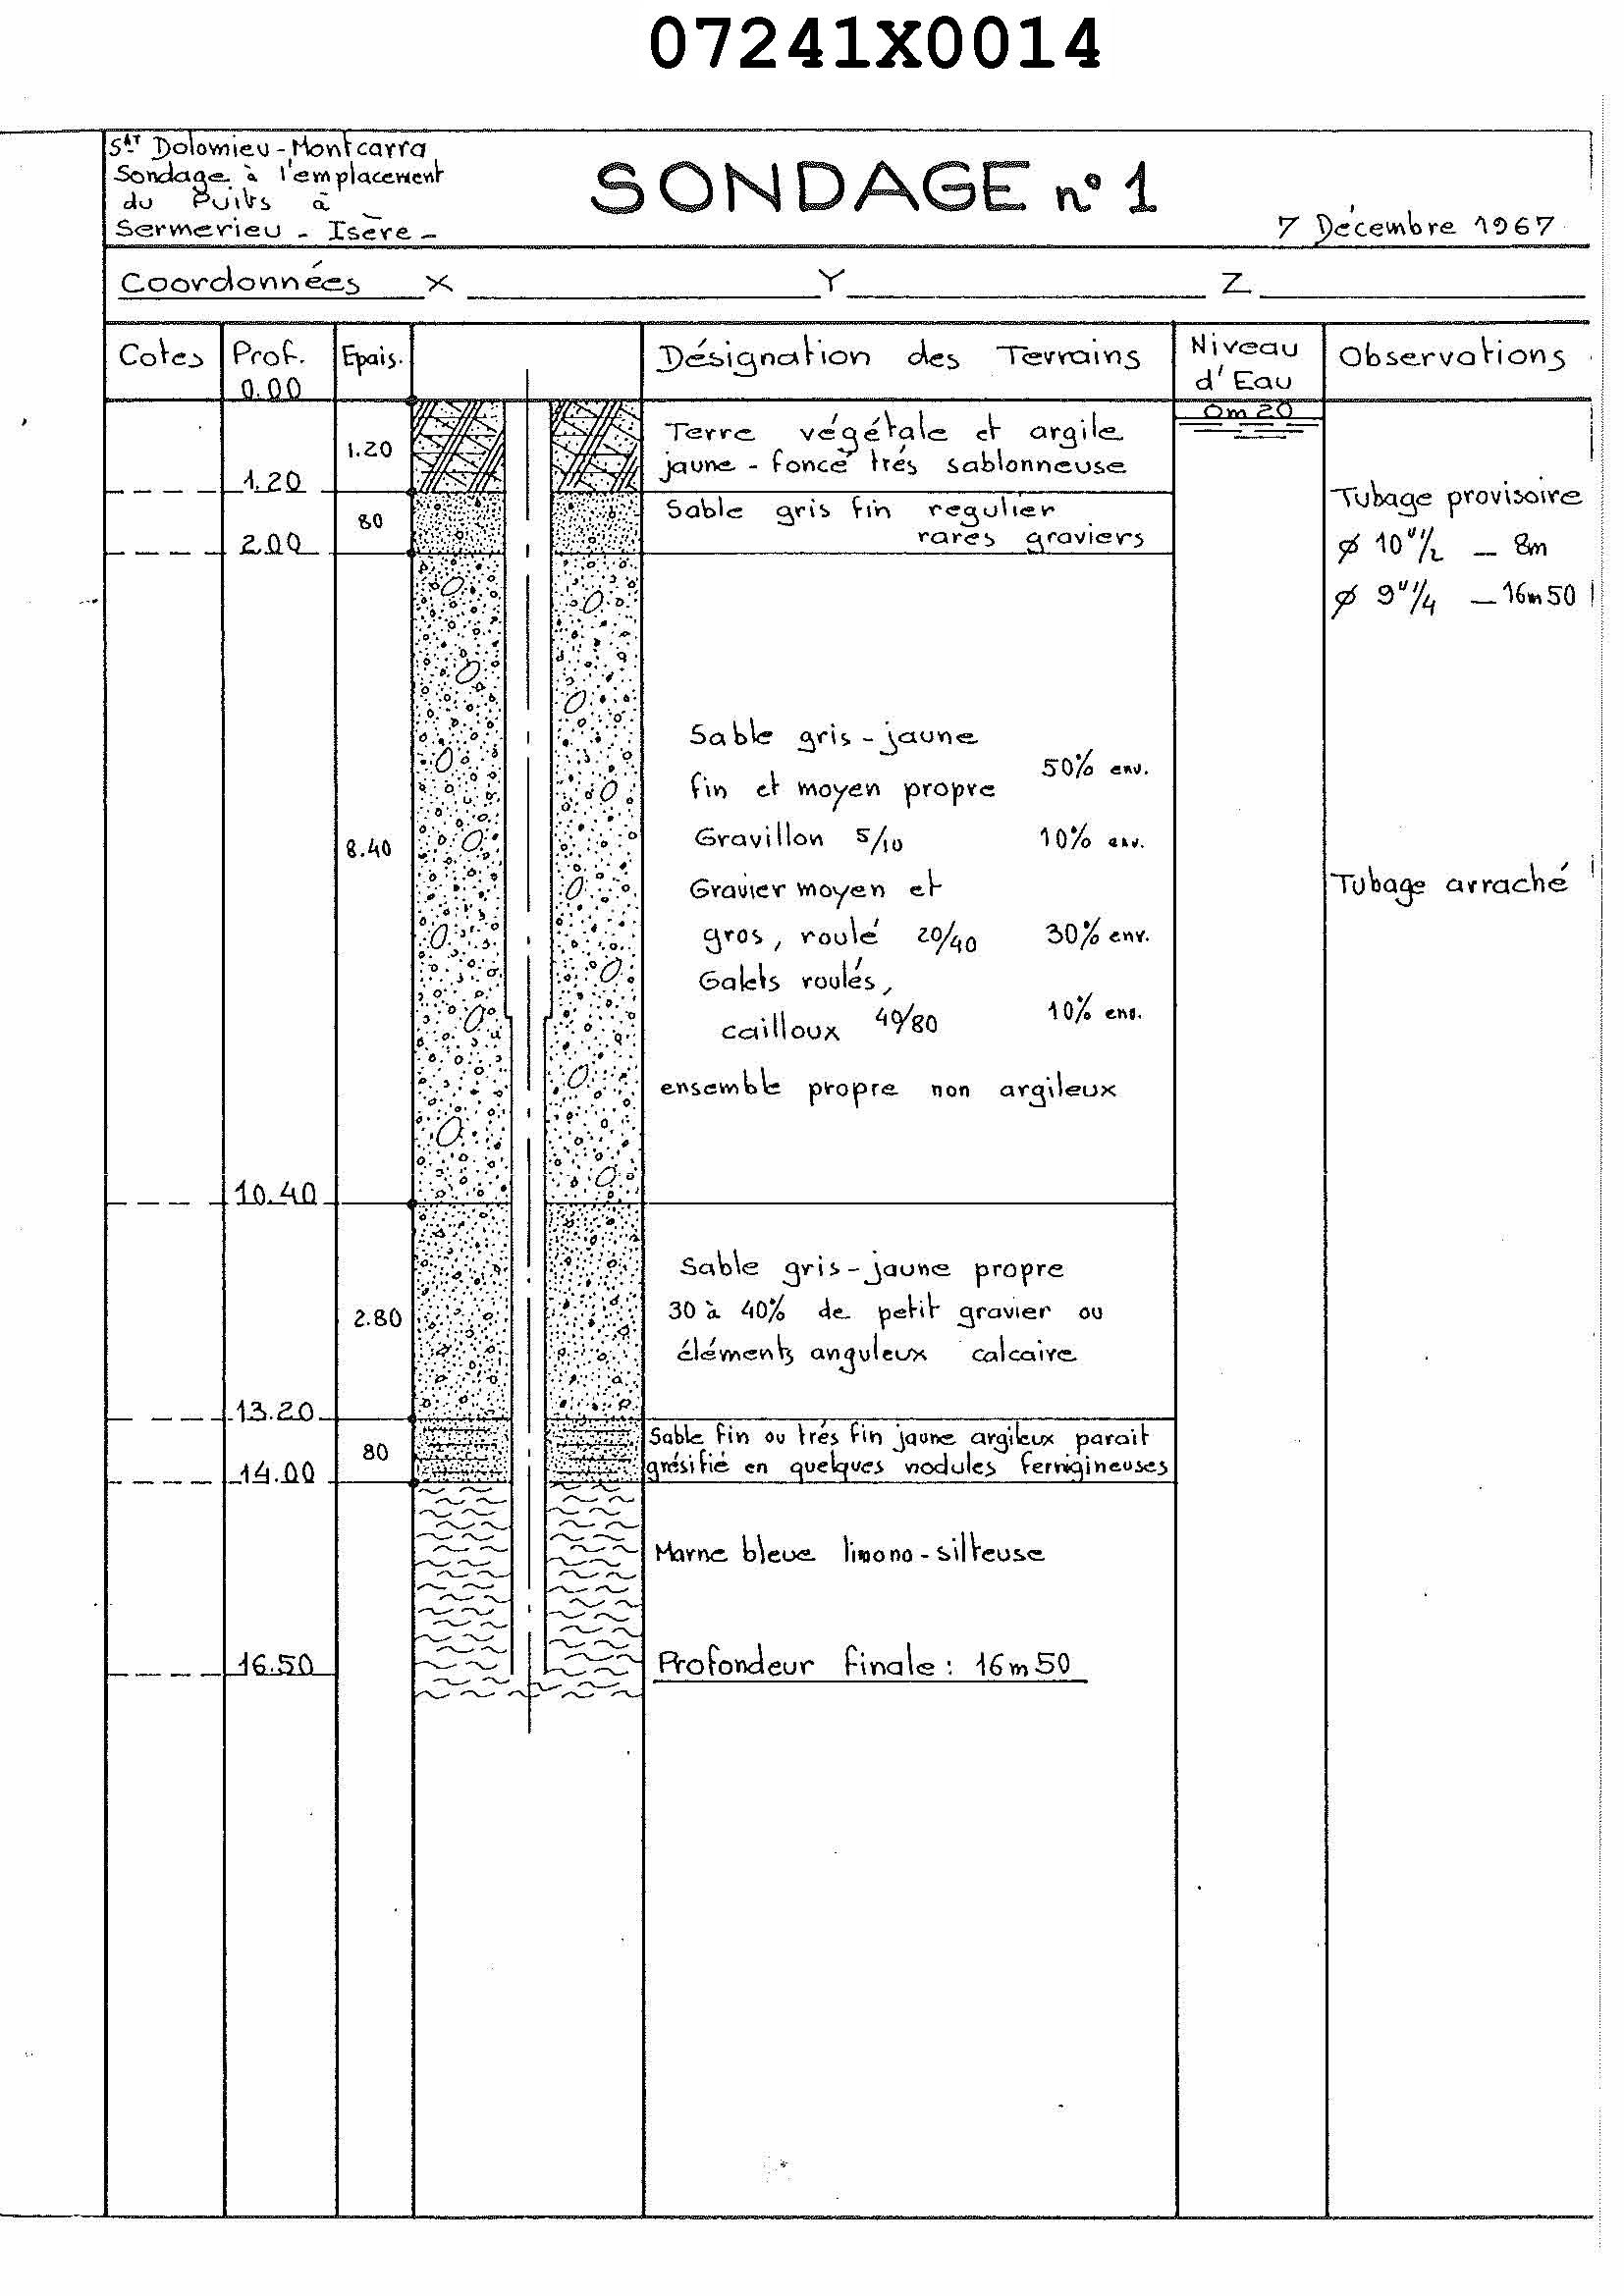 07241X0014
Sat Dolomieu - Montcarra
Sondage à l'emplacement
du Puits à
Sermerieu - Isère -
SONDAGE n° 1
7 Décembre 1967
Coordonnées X Y Z
Cotes Prof. Epais. Désignation des Terrains Niveau d'Eau Observations
0.00
0m20
1.20
Terre végétale et argile
jaune - foncé trés sablonneuse
1.20
80
Sable gris fin regulier
rares graviers
2.00
Tubage provisoire
ø 10"1/2 - 8m
ø 9"1/4 - 16m50
8.40
Sable gris - jaune
fin et moyen propre 50% env.
Gravillon 5/10 10% env.
Gravier moyen et
gros, roulé 20/40 30% env.
Galets roulés,
cailloux 40/80 10% env.
ensemble propre non argileux
Tubage arraché
10.40
2.80
Sable gris - jaune propre
30 à 40% de petit gravier ou
éléments anguleux calcaire
13.20
80
Sable fin ou trés fin jaune argileux parait
grésifié en quelques nodules ferrigineuses
14.00
Marne bleue limono - silteuse
16.50
Profondeur finale : 16m50